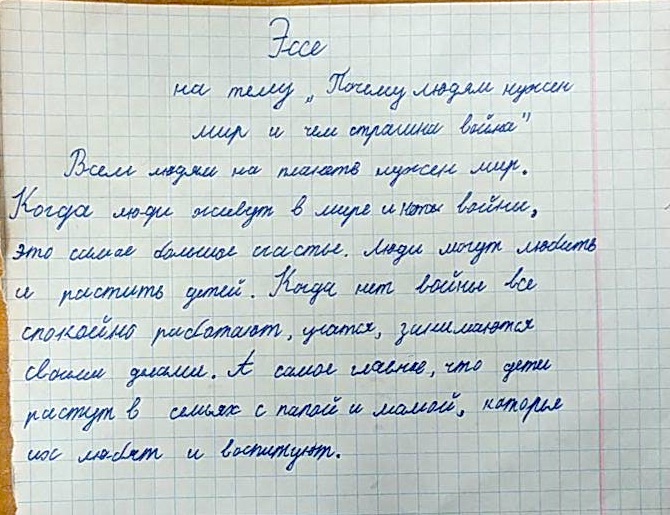 Эссе
на тему „Почему людям нужен
мир и чем страшна война"
Всем людям на планете нужен мир.
Когда люди живут в мире и нет войны,
это самое большое счастье. Люди могут любить
и растить детей. Когда нет войны все
спокойно работают, учатся, занимаются
своими делами. А самое главное, что дети
растут в семьях с папой и мамой, которые
их любят и воспитуют.